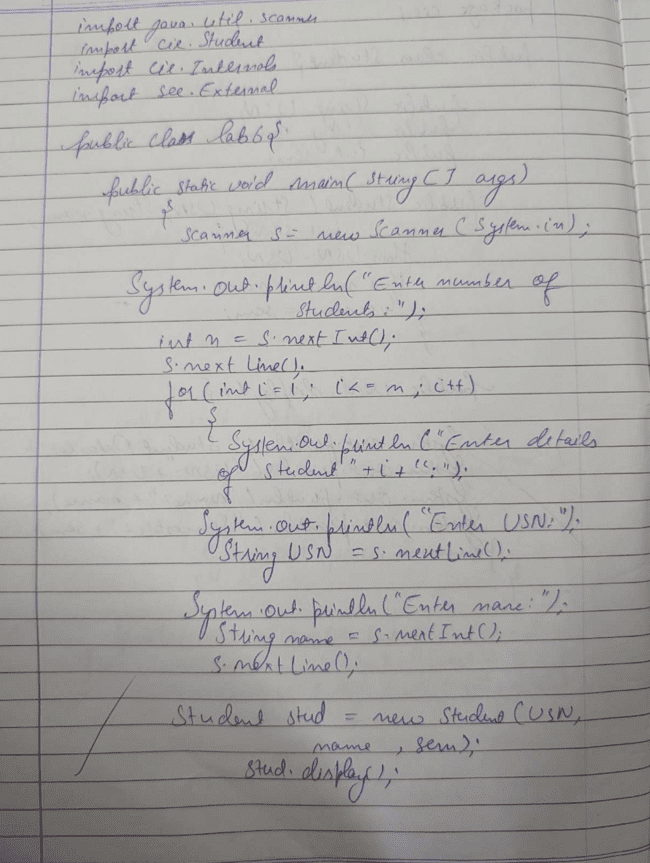 import java.util.scanner
import cie.Student
import cie.Internals
import see.External
public class lab6{
public static void main(String[] args)
{
scanner s= new Scanner(System.in);
System.out.println("Enter number of
students:");
int n = s.nextInt();
s.next Line();
for(int i=i; i<=n; i++)
{
System.out.println("Enter details
of student"+i+":");
System.out.println("Enter USN:");
String USN = s.nextLine();
System.out.println("Enter name:");
String name = s.nextInt();
s.nextLine();
Student stud = new Student(USN,
name, sem);
stud.display();